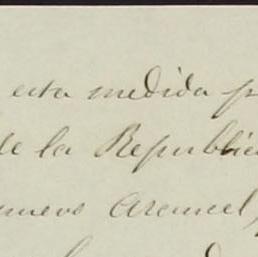 esta medida p
de la Republica
nuevo Arancel,